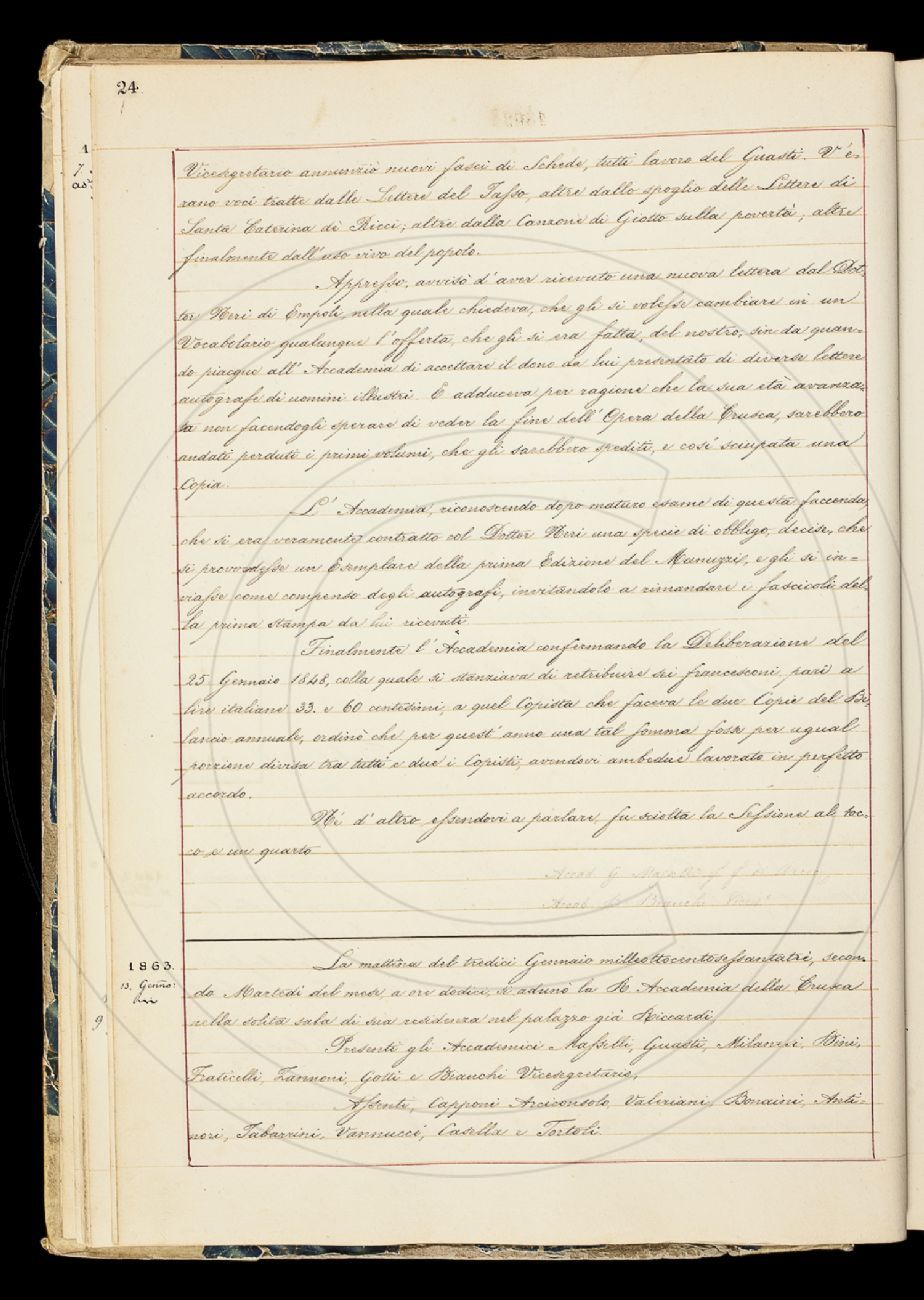 24
Vicesegretario annunziò nuovi fasci di Schede, tutti lavoro del Guasti. V'e-
rano voci tratte dalle Lettere del Tasso, altre dallo spoglio delle Lettere di
Santa Caterina de' Ricci; altre dalla Canzone di Giotto sulla povertà; altre
finalmente dall'uso vivo del popolo.
Appresso, avvisò d'aver ricevuto una nuova lettera dal Dot-
tor Neri di Empoli, nella quale chiedeva, che gli si volesse cambiare in un
Vocabolario qualunque l'offerta, che gli si era fatta, del nostro, sin da quan-
do piacque all'Accademia di accettare il dono da lui presentato di diverse lettere
autografe di uomini illustri. E adduceva per ragione che la sua età avanza-
ta non facendogli sperare di veder la fine dell'Opera della Crusca, sarebbero
andati perduti i primi volumi, che gli sarebbero spediti, e così sciupata una
Copia.
L'Accademia, riconoscendo dopo maturo esame di questa faccenda,
che si era veramente contratto col Dottor Neri una specie di obbligo, decise, che
si provvedesse un Esemplare della prima Edizione del Manuzzi, e gli si in-
viasse come compenso degli autografi, invitandolo a rimandare i fascicoli del-
la prima stampa da lui ricevuti.
Finalmente l'Accademia confermando la Deliberazione del
25 Gennaio 1848, colla quale si stanziava di retribuire sei francesconi, pari a
lire italiane 33. e 60 centesimi, a quel Copista che faceva le due Copie del Bi-
lancio annuale, ordinò che per quest'anno una tal somma fosse per ugual
porzione divisa tra tutti e due i Copisti, avendovi ambedue lavorato in perfetto
accordo.
Né d'altro essendovi a parlare, fu sciolta la Sessione al toc-
co e un quarto
Accad. G. Masselli f. f. di Arcic.
Accad. B. Bianchi Vices.
1863.
13. Genno:
La mattina del tredici Gennaio milleottocentosessantatrè, secon-
do Martedì del mese, a ore dodici, si adunò la R. Accademia della Crusca
nella solita sala di sua residenza nel palazzo già Riccardi.
9
Presenti gli Accademici Masselli, Guasti, Milanesi, Bini,
Fraticelli, Zannoni, Gotti e Bianchi Vicesegretario.
Assenti, Capponi Arciconsolo, Valeriani, Bonaini, Anti-
nori, Tabarrini, Vannucci, Casella e Tortoli.